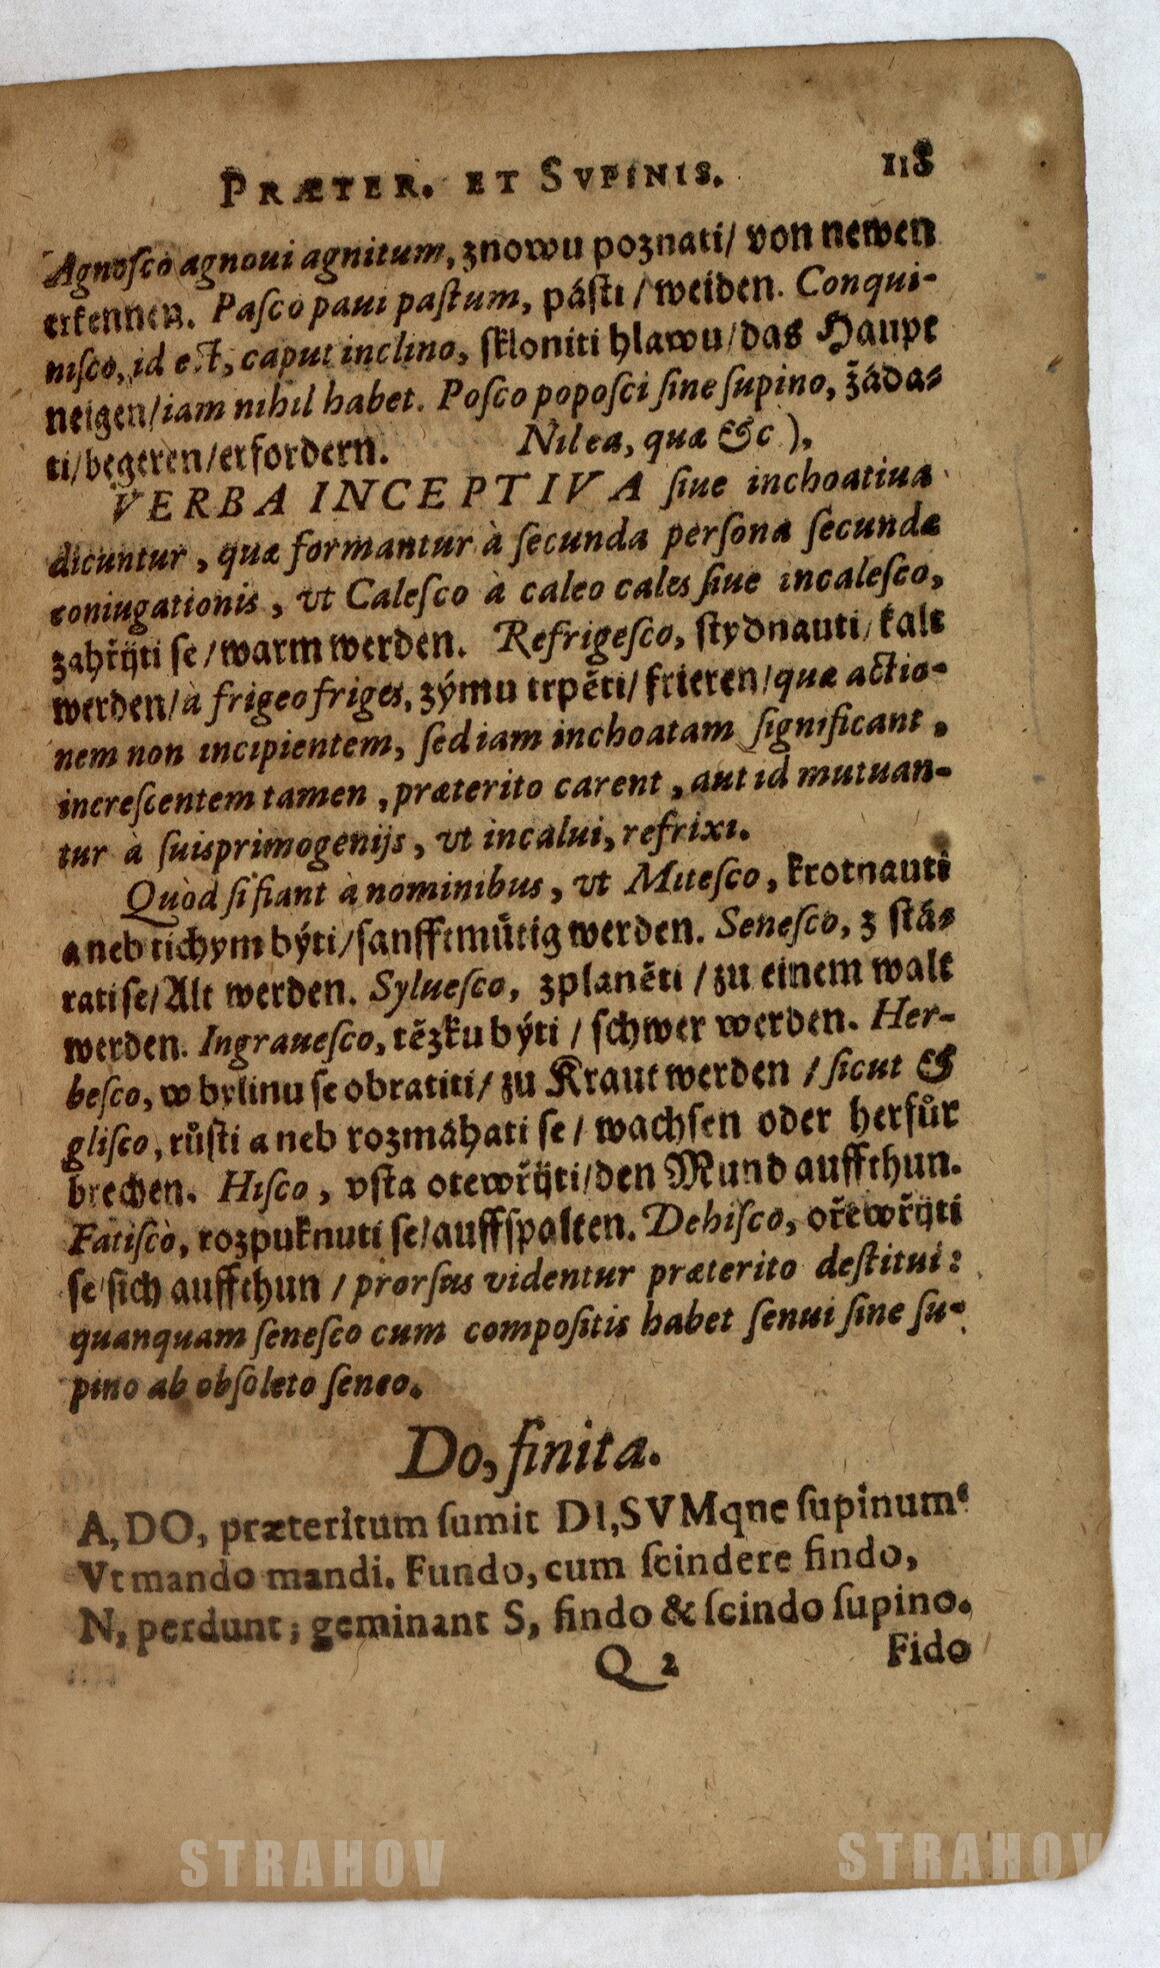 PRÆTER. ET SVPINIS. 118
Agnoſco agnoui agnitum, znowu poznati/ von newen
erkennen. Paſco paui paſtum, páſti / weiden. Conqui-
niſco, id eſt, caput inclino, ſkloniti hlawu/das Haupt
neigen/iam nihil habet. Poſco popoſci ſine ſupino, žáda-
ti/begeren/erfordern. Nilea, quæ &c ),
VERBA INCEPTIVA ſiue inchoatiua
dicuntur, quæ formantur à ſecunda perſona ſecundæ
coniugationis, vt Caleſco à caleo cales ſiue incaleſco,
zahřijti ſe/warm werden. Refrigeſco, ſtydnauti/ kalt
werden/à frigeo friges, zýmu trpěti/ frieren/quæ actio-
nem non incipientem, ſed iam inchoatam ſignificant,
increſcentem tamen, præterito carent, aut id mutuan-
tur à ſuis primogenijs, vt incalui, refrixi.
Quòd ſi fiant à nominibus, vt Miteſco, krotnauti
aneb tichym býti/ſanfftmütig werden. Seneſco, z ſtá-
rati ſe/Alt werden. Sylueſco, zplaněti /zu einem walt
werden. Ingraueſco, těžku býti / ſchwer werden. Her-
beſco, w bylinu ſe obratiti/ zu Kraut werden /ſicut &
gliſco, růſti aneb rozmáhati ſe/ wachſen oder herfür
brechen. Hiſco, vſta otewřijti/den Mund auffthun.
Fatiſco, rozpuknuti ſe/auffſpalten. Dehiſco, ořewřijti
ſe/ſich auffthun / prorſus videntur præterito deſtitui:
quanquam ſeneſco cum compoſitis habet ſenui ſine ſu-
pino ab obſoleto ſeneo.
Do, finita.
A, DO, præteritum ſumit DI, SVMqne ſupinum:
Vt mando mandi. Fundo, cum ſcindere findo,
N, perdunt; geminant S, findo & ſcindo ſupino.
Q 2 Fido
STRAHOV STRAHOV